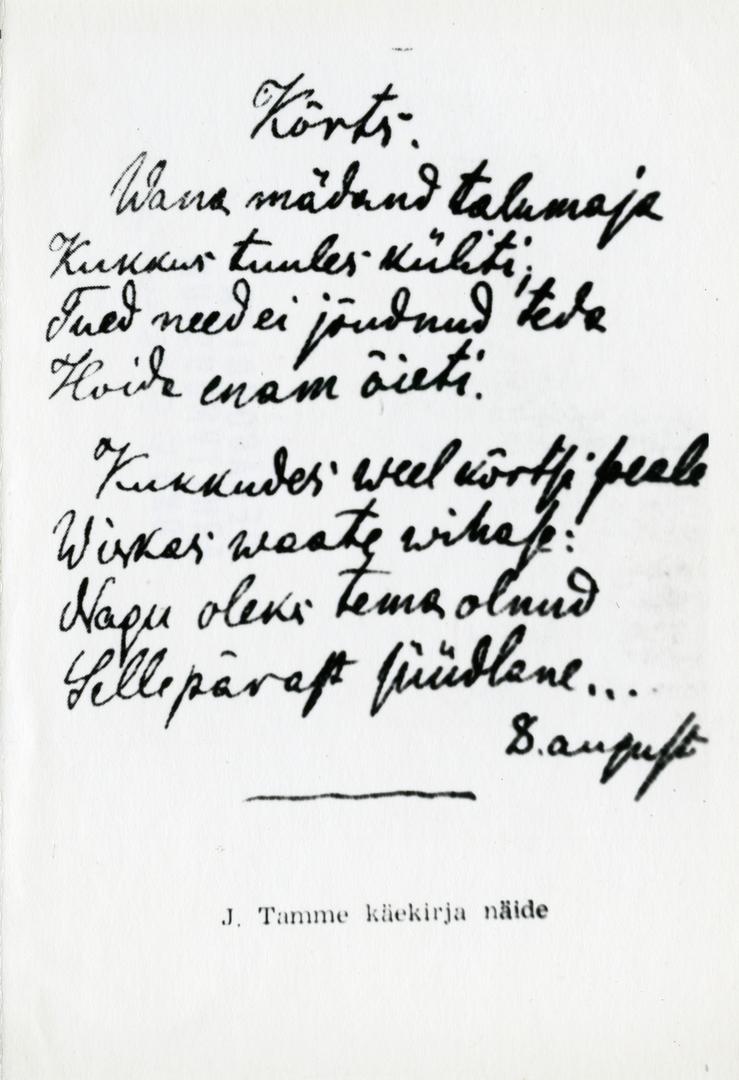 Kõrts.
Wana mädand talumaja
Kukkus tuules küliti;
Tued need ei jõudnud teda
Hoida enam õieti.
Kukkudes weel kõrtsi peale
Wiskas waate wihase:
Nagu oleks tema olnud
Selle pärast süüdlane...
8. august
J. Tamme käekirja näide